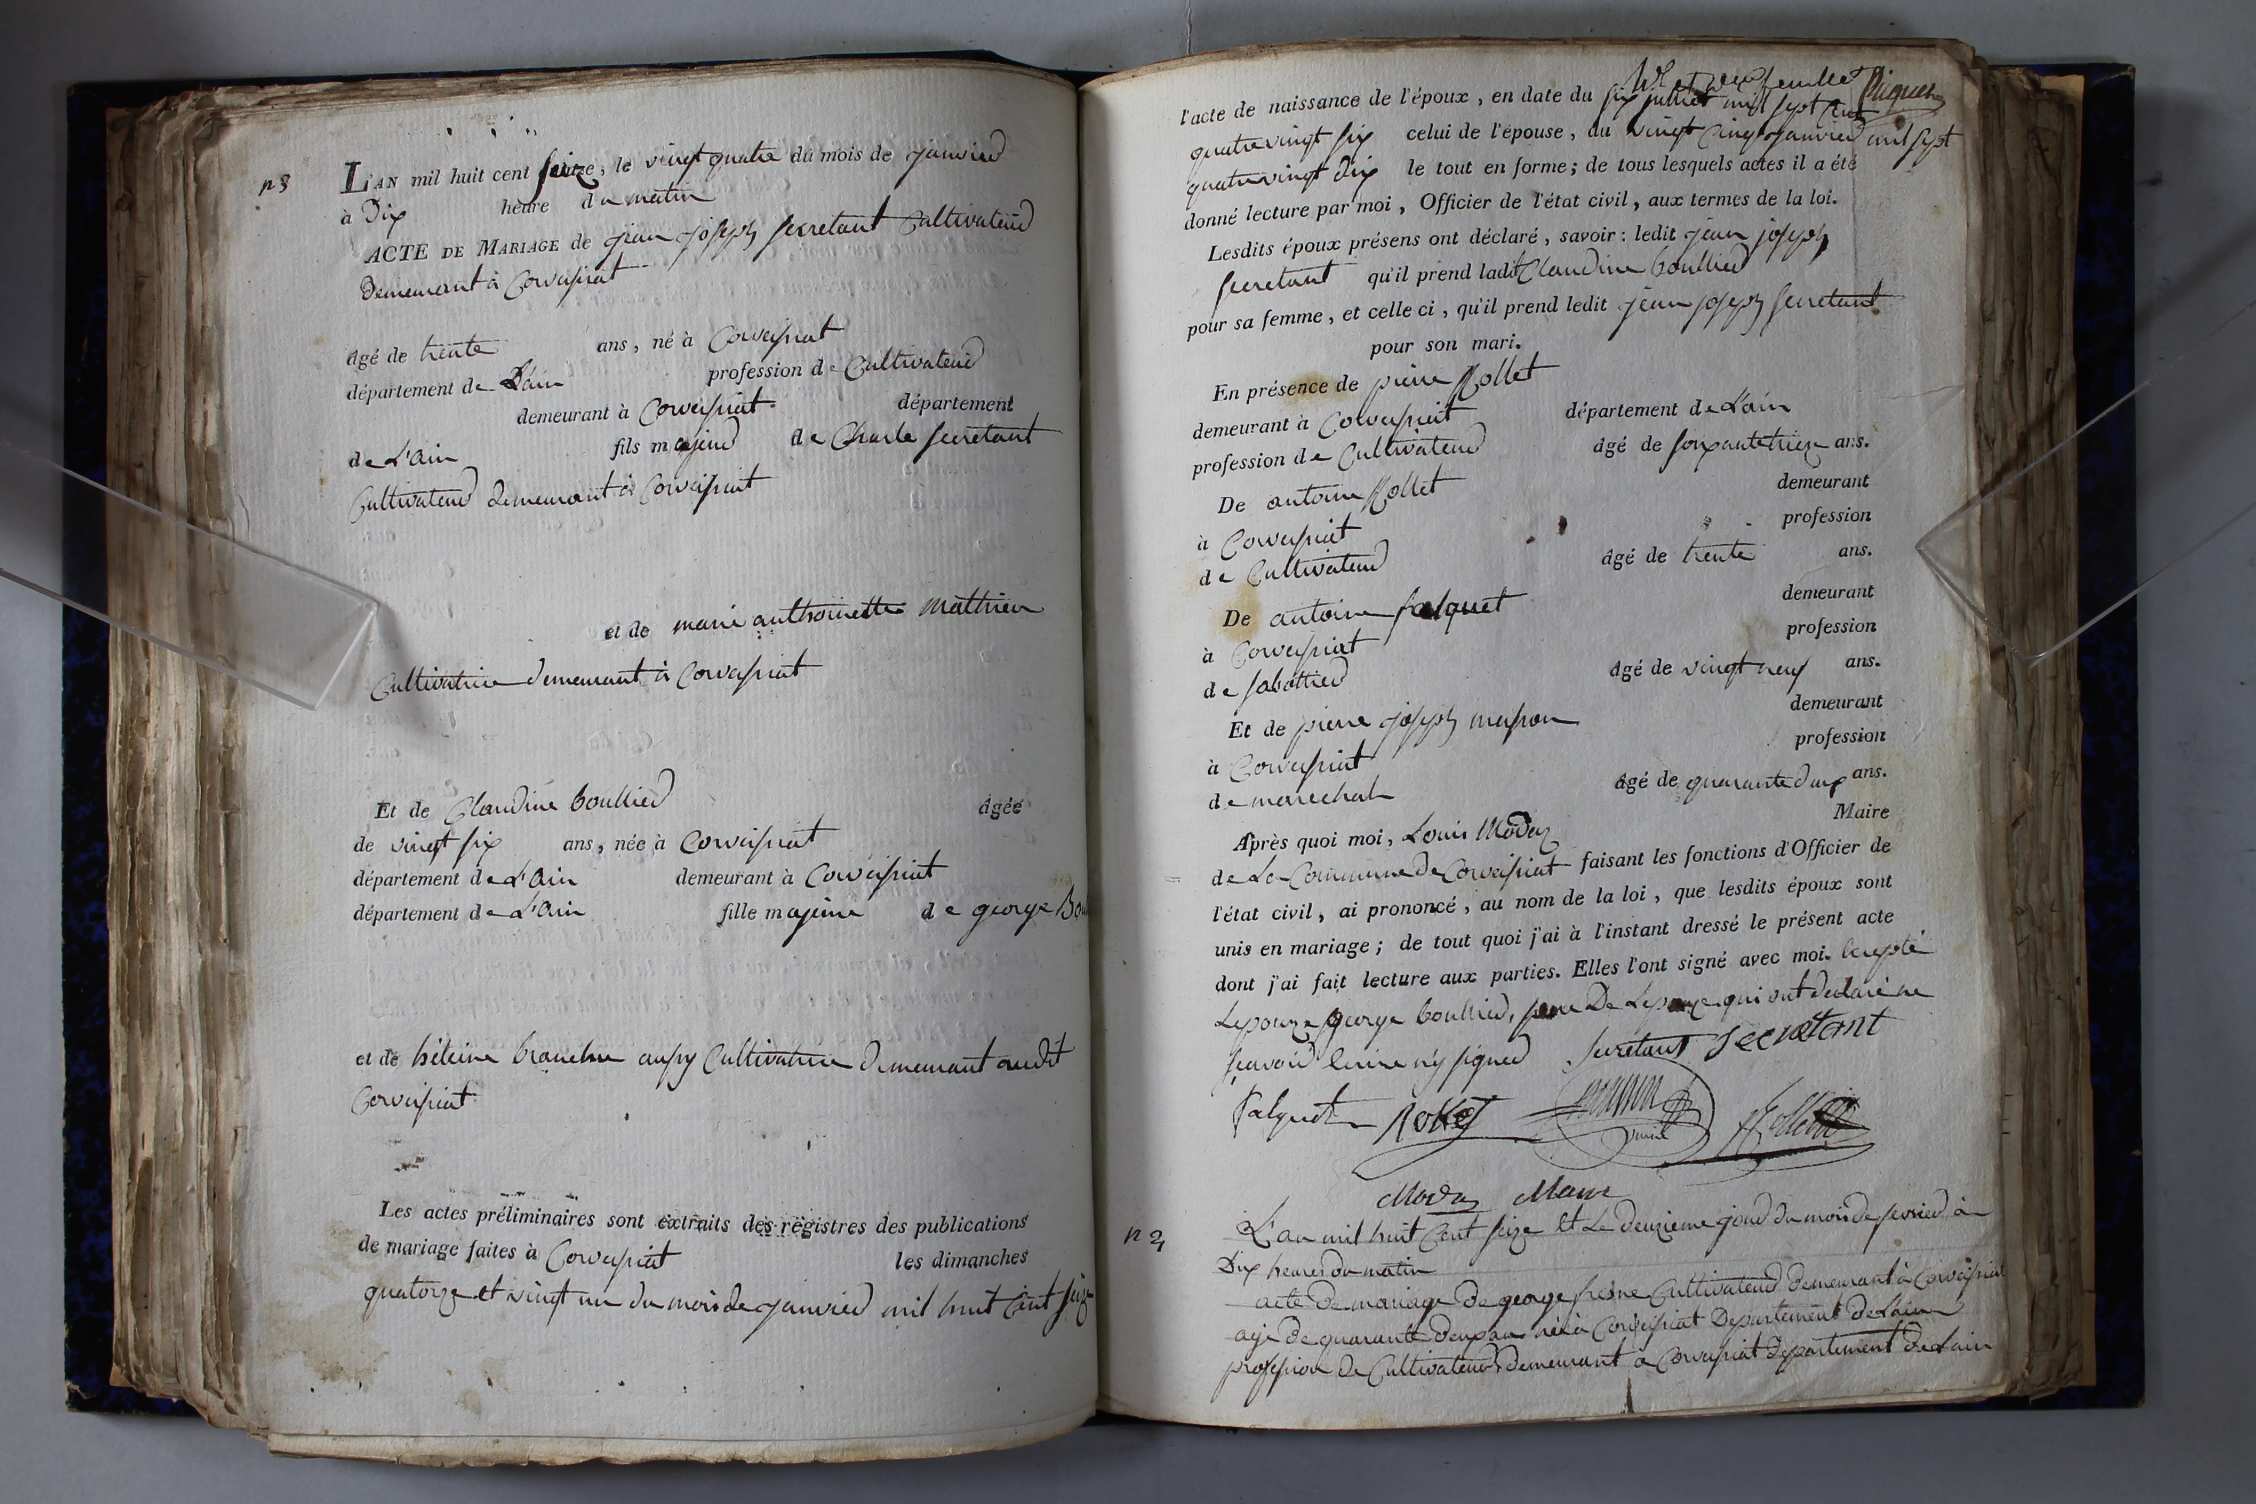 n 3
L'AN mil huit cent seize, le vingt quatre du mois de janvier
à Dix heure du matin
ACTE DE MARIAGE de jean joseph secretant Cultivateur
demeurant à Corveissiat
âgé de trente ans, né à Corveissiat
département de L'ain profession de Cultivateur
demeurant à Corveissiat département
de L'Ain fils majeur de Charle secretant
Cultivateur demeurant à Corveissiat
et de marie anthoinette mathieu
Cultivatrice demeurant à Corveissiat
Et de Claudine boullier âgée
de vingt six ans, née à Corveissiat
département de L'Ain demeurant à Corveissiat
département de L'Ain fille majeure de george
et de héleine aussy Cultivatrice demeurant audit
Corveissiat
Les actes préliminaires sont extraits des registres des publications
de mariage faites à Corveissiat les dimanches
quatorze et vingt un du mois de janvier mil huit Cent seize
feuillet
l'acte de naissance de l'époux, en date du six juillet mil sept cent
quatre vingt six celui de l'épouse, du vingt cinq janvier mil sept
quatre vingt dix le tout en forme; de tous lesquels actes il a été
donné lecture par moi, Officier de l'état civil, aux termes de la loi.
Lesdits époux présens ont déclaré, savoir: ledit jean joseph
secretant qu'il prend ladit Claudine boullier
pour sa femme, et celle ci, qu'il prend ledit jean joseph secretant
pour son mari.
En présence de pierre Rollet
demeurant à Corveissiat département de L'ain
profession de Cultivateur âgé de soixante treize ans.
De antoine Rollet demeurant
à Corveissiat profession
de Cultivateur âgé de trente ans.
De antoine falquet demeurant
à Corveissiat profession
de sabottier âgé de vingt neuf ans.
Et de pierre joseph demeurant
à Corveissiat profession
de marechal âgé de quarante deux ans.
Après quoi moi, Louis Moday Maire
de La Commune de Corveissiat faisant les fonctions d'Officier de
l'état civil, ai prononcé, au nom de la loi, que lesdits époux sont
unis en mariage; de tout quoi j'ai à l'instant dressé le présent acte
dont j'ai fait lecture aux parties. Elles l'ont signé avec moi. Excepté
Lepouze george boullier, pere De Lepouze qui ont declaré ne
seavoir Ecrire n'y signer secretant secretant
falquet Rollet Rollet
Moday Maire
n 4
L'an mil huit Cent seize et Le deuzieme jour du mois de fevrier à
Dix heures du matin
acte De mariage de george Cultivateur demeurant à Corveissiat
agé de quarante deux ans né à Corveissiat Departement De L'ain
profession de Cultivateur demeurant a Corveissiat departement de Lain